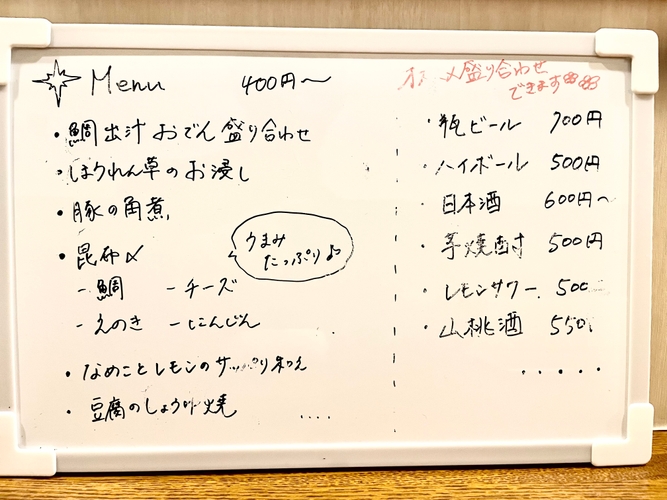 Menu 400円〜
・鯛出汁おでん盛り合わせ
・ほうれん草のお浸し
・豚の角煮
・昆布〆
うまみ
たっぷり♪
-鯛 -チーズ
-えのき -にんじん
・なめことレモンのサッパリ和え
・豆腐のしょうが焼
....
〆盛り合わせ
できます
・瓶ビール 700円
・ハイボール 500円
・日本酒 600円〜
・芋焼酎 500円
・レモンサワー 500
・山桃酒 550
.....